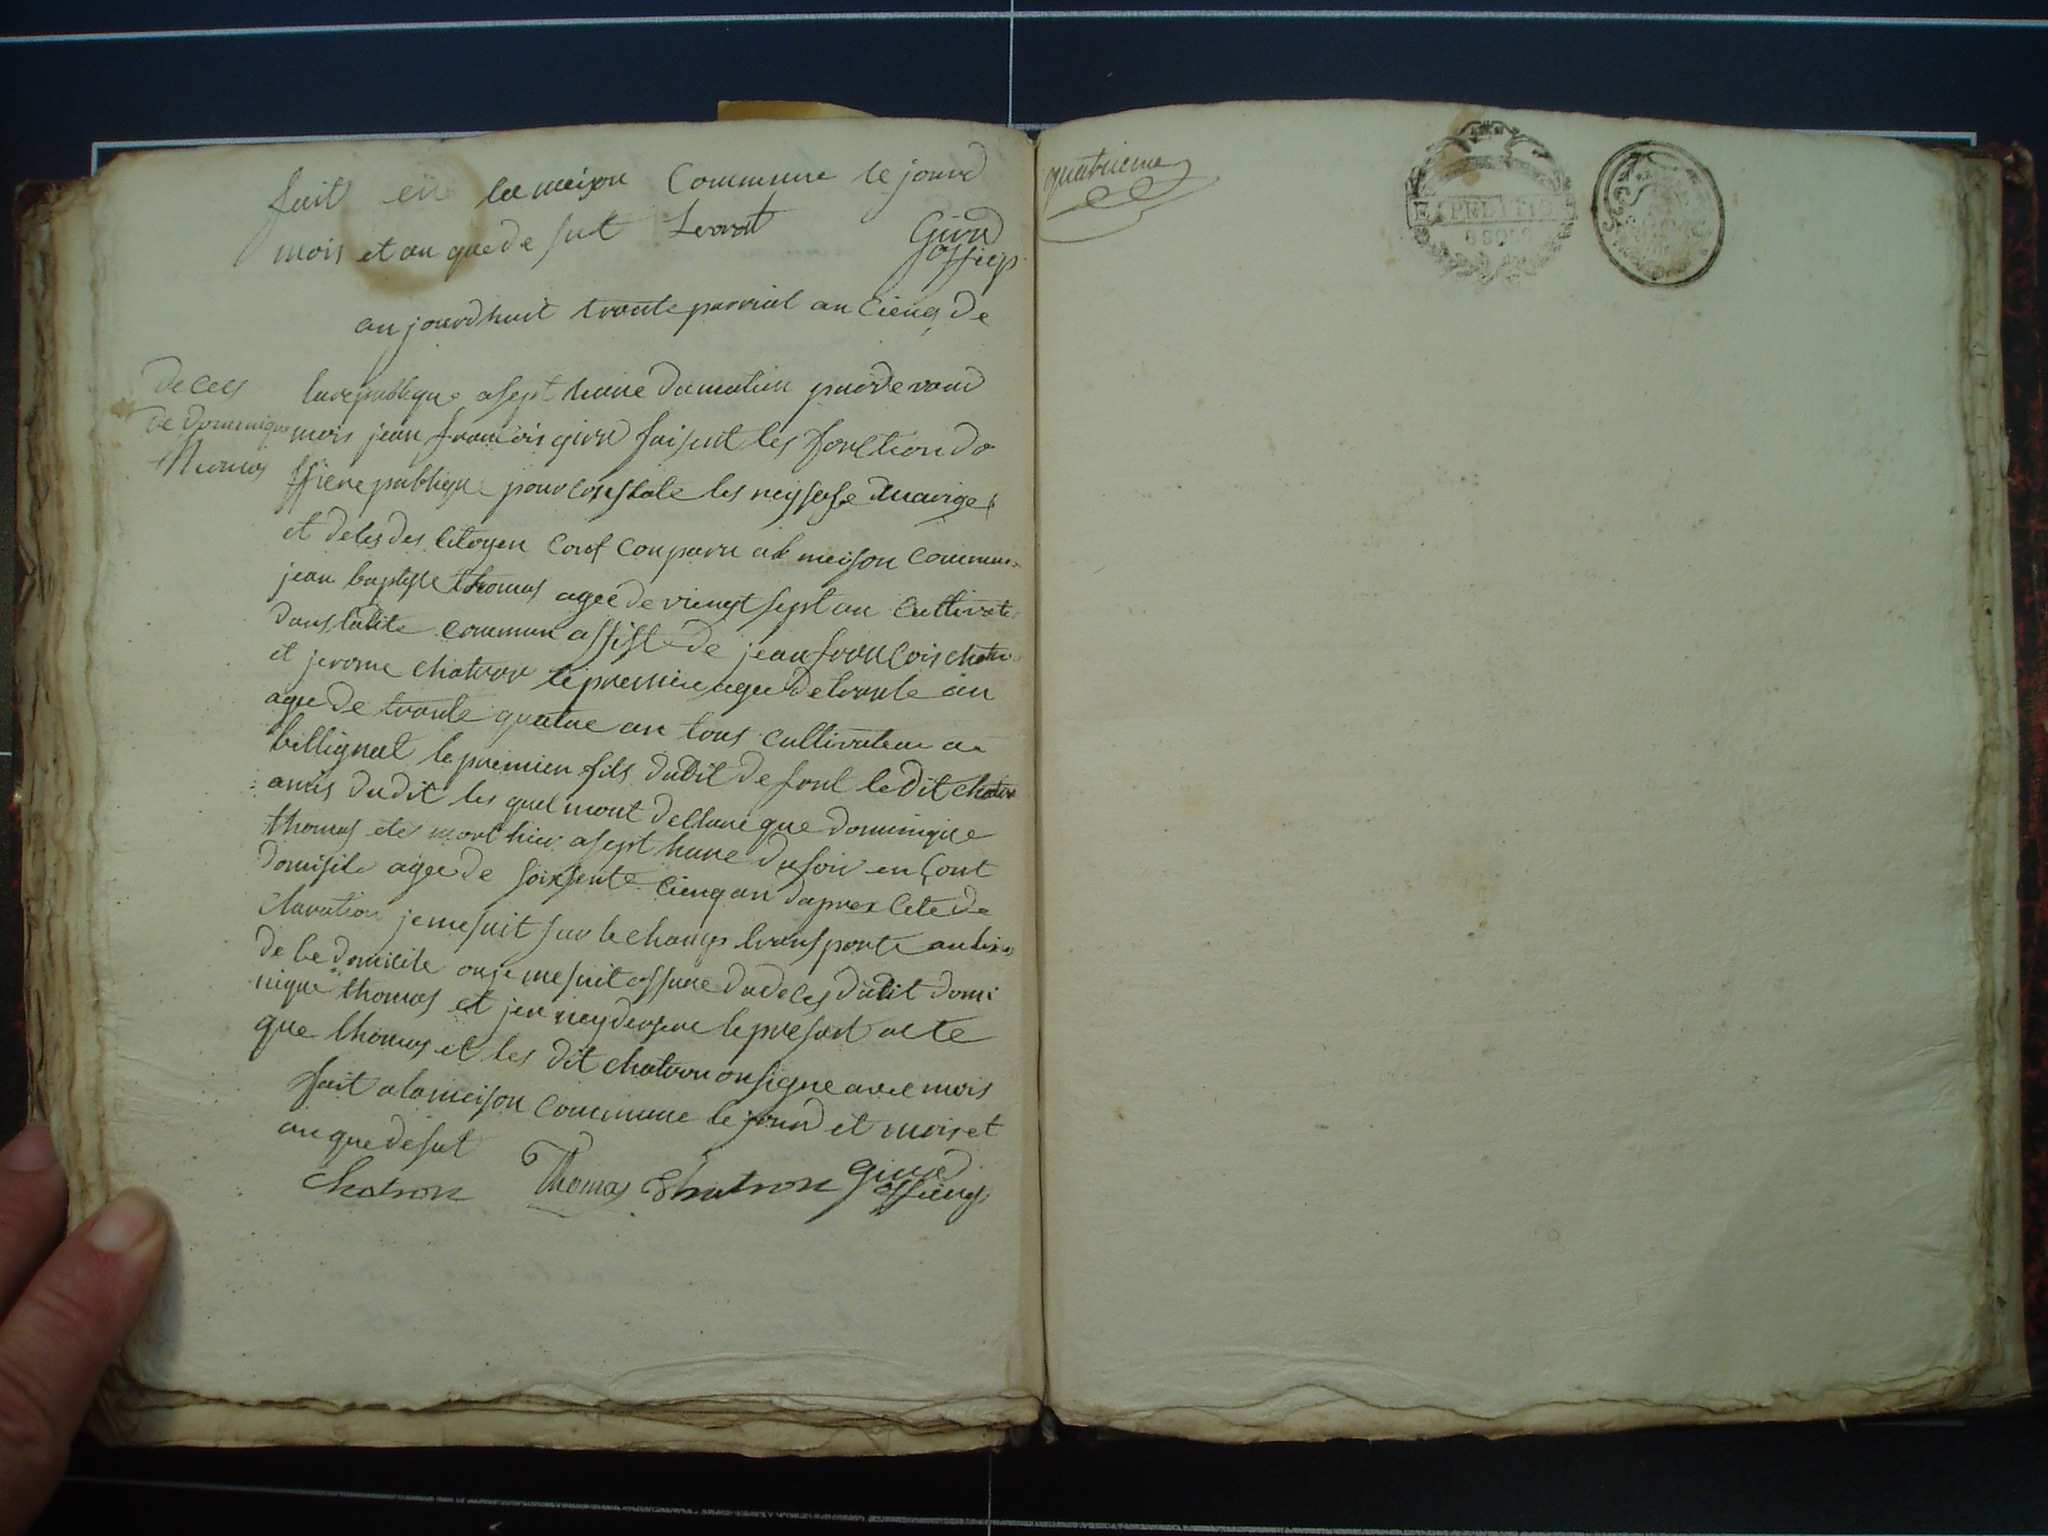 fait en la meison Commune le jourd
mois et an que de sut Levrat Girod
offi. p.
au jourdhuit trante parrial an cienq de
deces
de dominique
thomas
la republique a sept heure du matien pardevand
mois jean francois girod faisent les fonction do
ffiere publique pour constate les neyssense Mariges
et deces des citoyen cont conparu a la meison commune
jean baptiste thomas agee de viengt sept an cultivate
dans ladite commun assiste de jean francois chatron
et jerome chatron le premiere agee de trante an
agee de trante quatre an tous cultivateur a
billignat le premier fils dudit defont le dit chatron
amis du dit les quel mont declare que dominique
thomas ete mort hier a sept heure du soir en sont
domisile agee de soixsente cienq an daprex cete de
claration je me suit sur le champs transporte au lieu
de ce domicile ou je me suit assure du deces dudit domi
nique thomas et jen ney dersere le presant acte
que thomas et les dit chatron on signe avec mois
fait a la meison commune le jourd et mois et
an que de sut
Chatron Thomas Chatron Girod
offi. p.
quatrieme